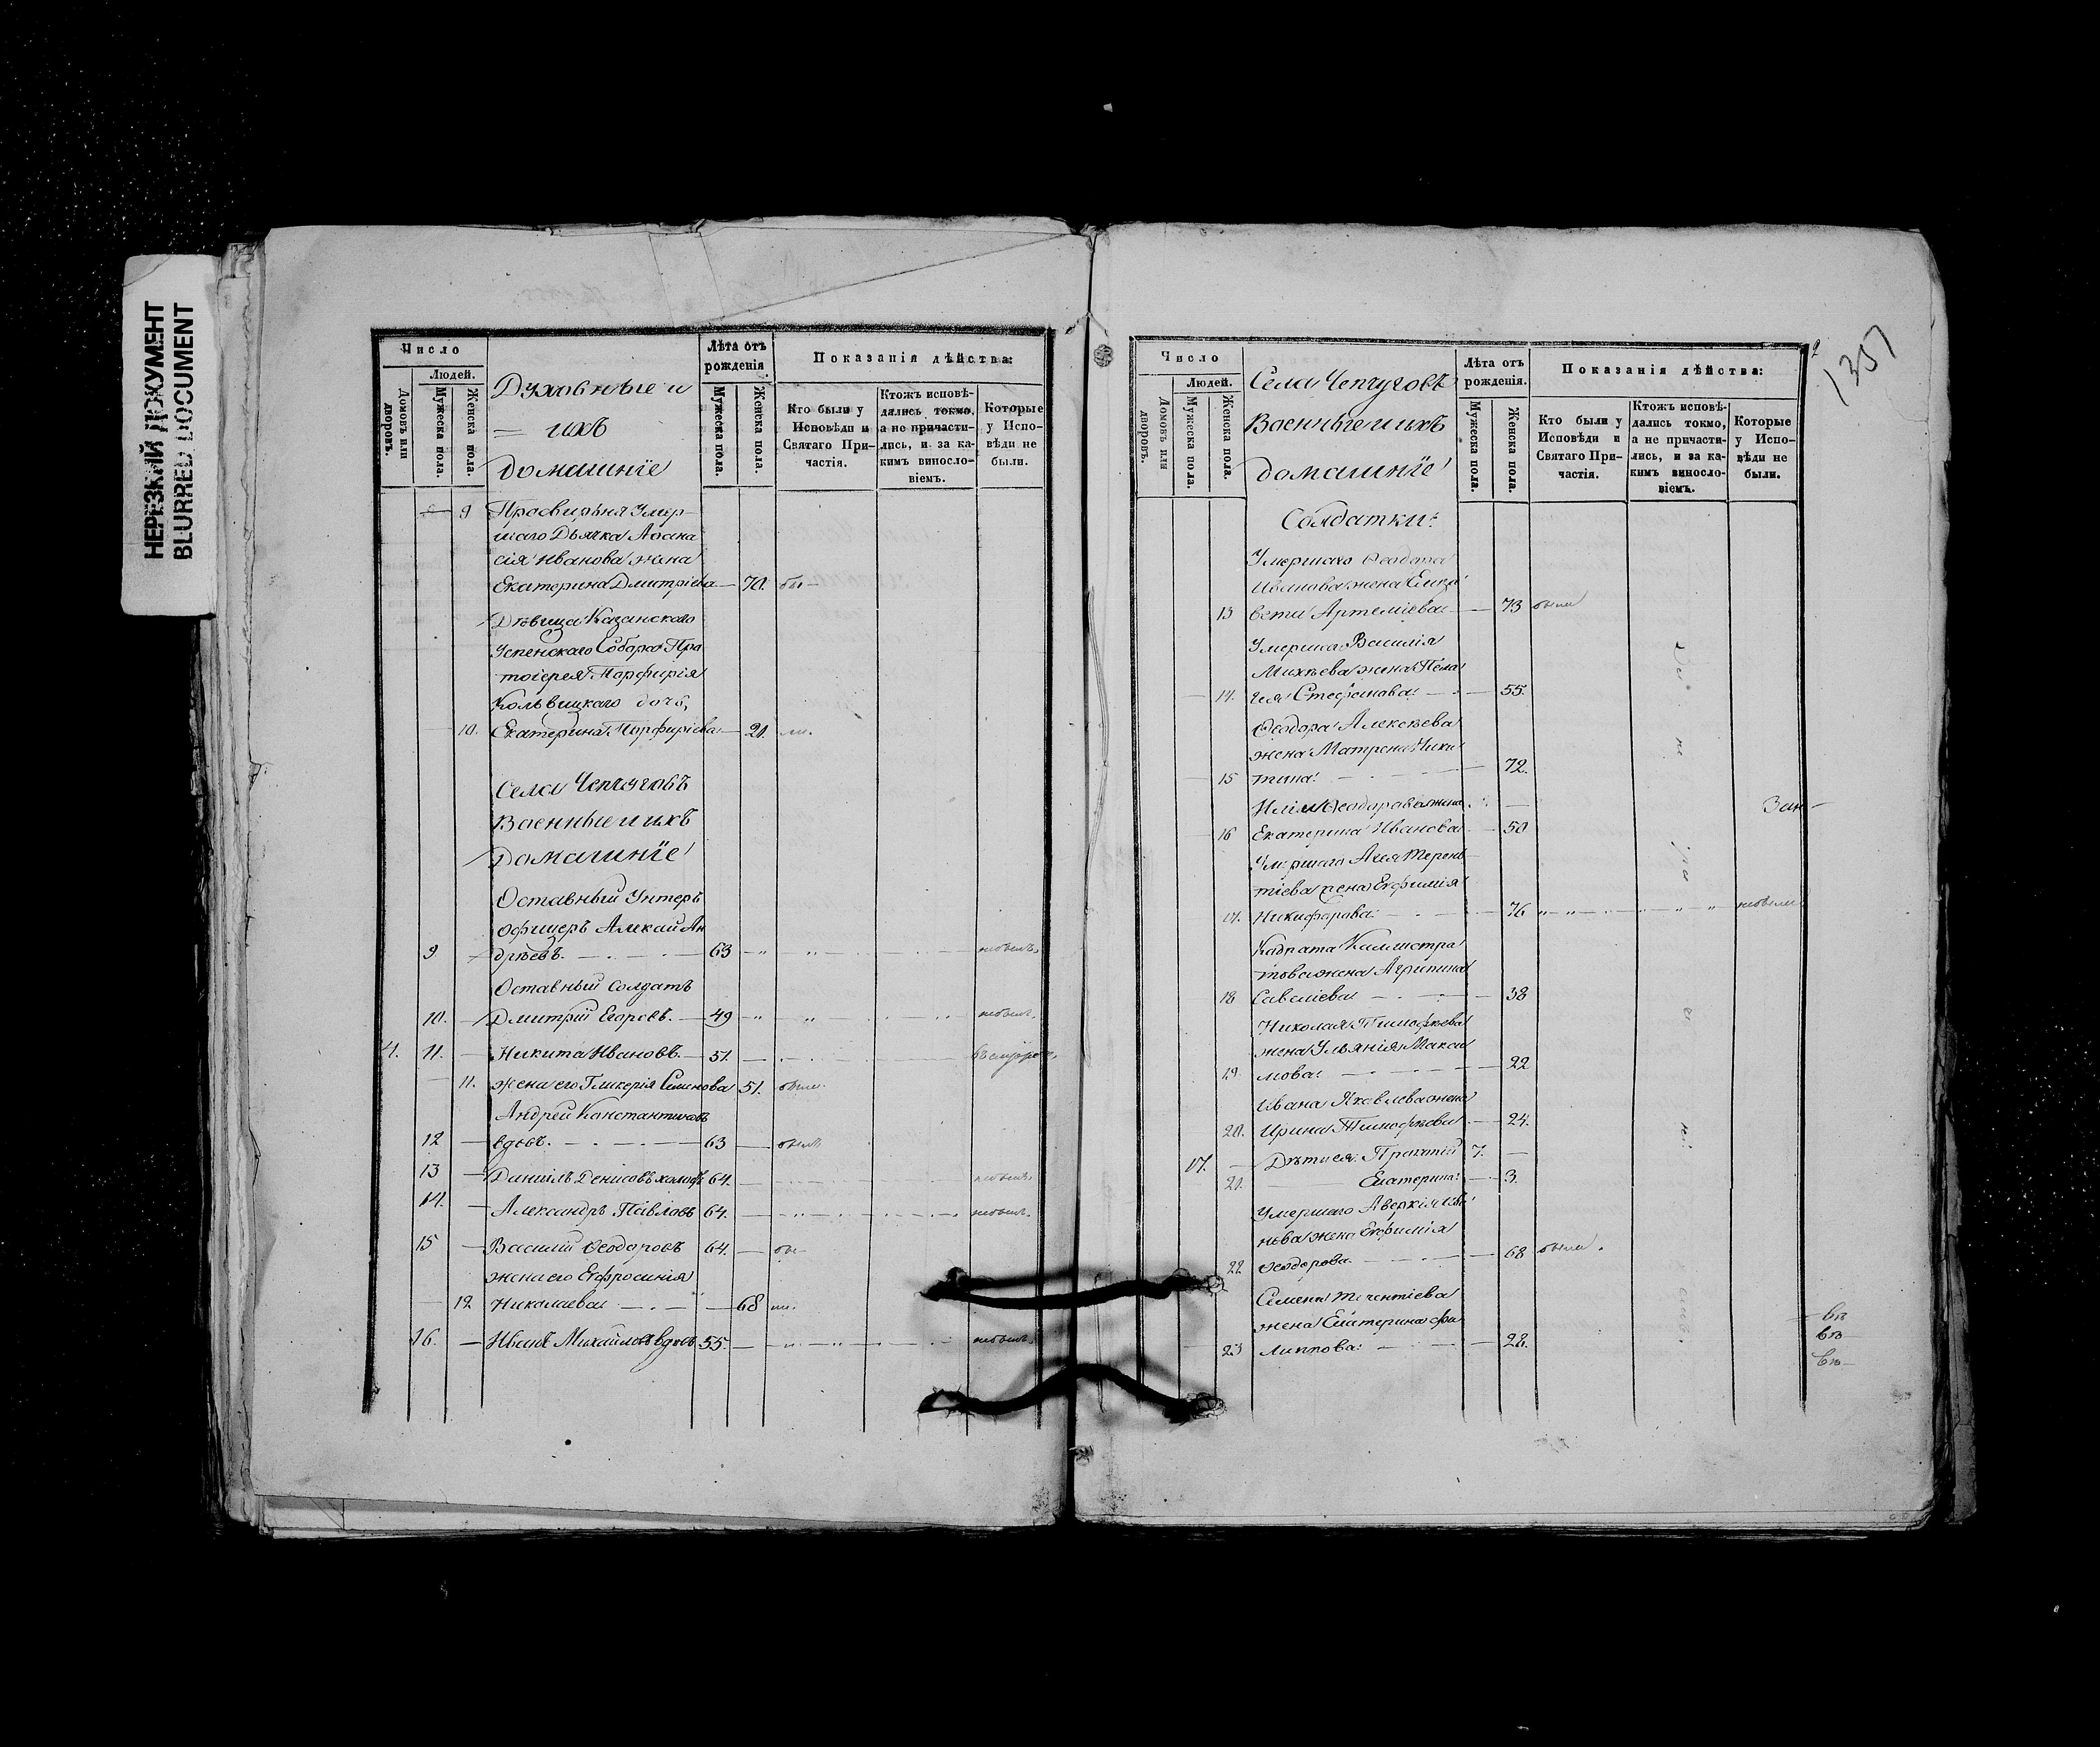 НЕРЕЗКИЙ ДОКУМЕНТ
BLURRED DOCUMENT
Число
Людей.
Домовъ или дворовъ.
Мужеска пола.
Женска пола.
Духовные и
ихъ
домашнїе
Лѣта отъ рожденія.
Мужеска пола.
Женска пола.
Показанія дѣйства:
Кто были у Исповѣди и Святаго Причастія.
Ктожъ исповѣдались токмо, а не причастились, и за какимъ винословіемъ.
Которые у Исповѣди не были.
9 Просвирня Умер-
шаго Дьячка Аѳана
сія Иванова жена
Екатерина Дмитріева — 70. бы-
Дѣвица Казанскаго
Успенскаго Собора Про
тоіерея Порфирія
дочь
10. Екатерина Порфиріева — 20. ли.
Села Чепчуговъ
Военные и ихъ
домашнїе
Оставный Унтеръ
Офицеръ Алексѣй Ан
9 дрѣевъ. — 63 небылъ.
Оставный солдатъ
10. Дмитрій Егоровъ. — 49 небылъ.
4. 11. Никита Ивановъ. — 51.
11. жена его Гликерія Семенова 51. были
Андрей Константиновъ
12 вдовъ. — 63 — былъ
13 Даніилъ Денисовъ холостъ 64. небылъ.
14. Александръ Павловъ 64. небылъ.
15 Василій Ѳеодоровъ 64. — бы-
жена его Евфросинія
12 Николаева — 68 ли.
16. Иванъ Михайловъ вдовъ 55. — небылъ.
1357
Число
Людей.
Домовъ или дворовъ.
Мужеска пола.
Женска пола.
Села Чепчуговъ
Военные и ихъ
домашнїе
Лѣта отъ рожденія.
Мужеска пола.
Женска пола.
Показанія дѣйства:
Кто были у Исповѣди и Святаго Причастія.
Ктожъ исповѣдались токмо, а не причастились, и за какимъ винословіемъ.
Которые у Исповѣди не были.
Солдатки:
Умершаго Ѳеодота
Иванова жена Елиза
13 вета Артеміева — 73 были
Умерша Василія
Михѣева жена Пела
14. гея Стефанова — 55.
Ѳеодора Алексѣева
жена Матрена Ники
15 тина — 72.
Иліи Ѳеодорова жена
16 Екатерина Иванова — 50
Умершаго Терень
тіева жена Евфимія
17. Никифорова — 76 небыли
Кадрата Каллистра
това жена Агрипина
18 Савеліева — 38
Николая Тимофѣева
жена Ульянія Макси
19. мова — 22
Ивана Яковлева жена
20. Ирина Тимофѣева — 24.
17. Дѣти ея: Прокопій 7. —
21. Екатерина: — 3.
Умершаго Аверкія
жена Евфимія
22 Ѳеодорова — 68 были.
Семена Терентіева
жена Екатерина Фи
23 липпова: — 28.